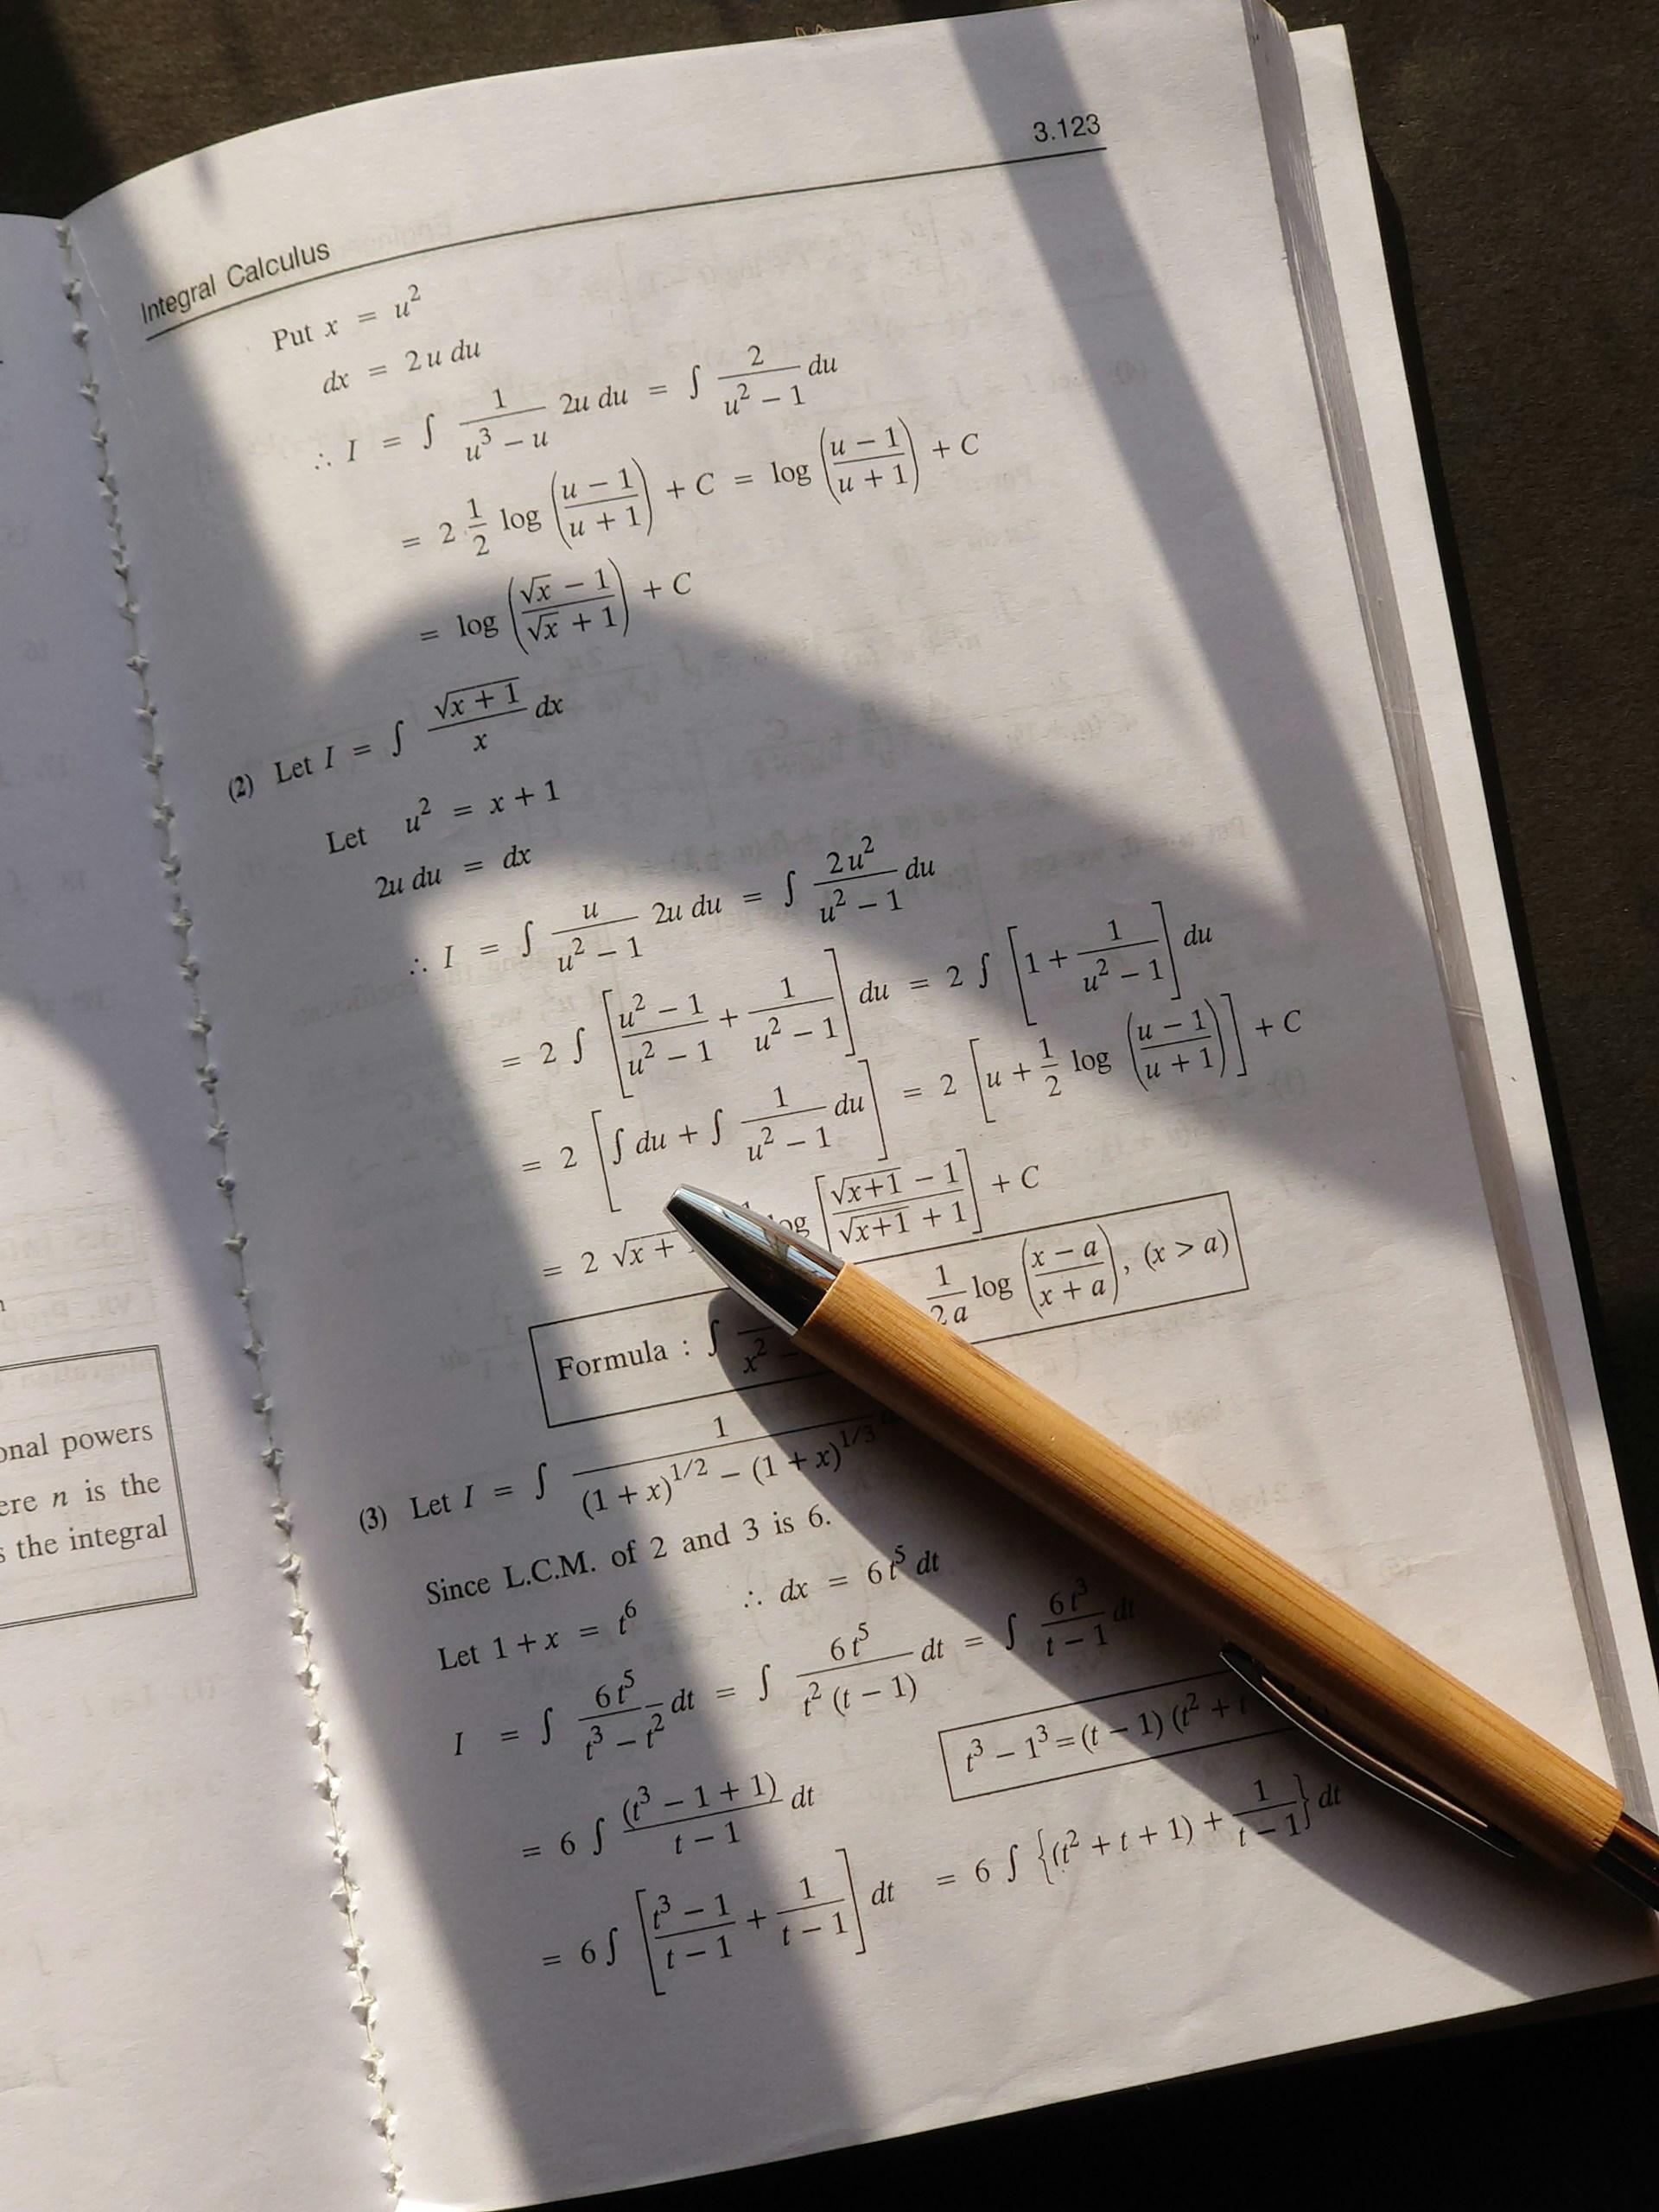 3.123
Integral Calculus
Put x = u²
dx = 2 u du
∴ I = ∫ 1/(u³ − u) 2u du = ∫ 2/(u² − 1) du
= 2 · 1/2 log ((u − 1)/(u + 1)) + C = log ((u − 1)/(u + 1)) + C
= log ((√x − 1)/(√x + 1)) + C
(2) Let I = ∫ √(x + 1)/x dx
Let u² = x + 1
2u du = dx
∴ I = ∫ u/(u² − 1) 2u du = ∫ 2u²/(u² − 1) du
= 2 ∫ [(u² − 1)/(u² − 1) + 1/(u² − 1)] du = 2 ∫ [1 + 1/(u² − 1)] du
= 2 [∫ du + ∫ 1/(u² − 1) du] = 2 [u + 1/2 log ((u − 1)/(u + 1))] + C
= 2 √x + [(√(x+1) − 1)/(√(x+1) + 1)] + C
Formula : ∫ x² − 1/(2a) log ((x − a)/(x + a)), (x > a)
(3) Let I = ∫ 1/((1 + x)^1/2 − (1 + x)^1/3)
Since L.C.M. of 2 and 3 is 6.
Let 1 + x = t⁶ ∴ dx = 6t⁵ dt
I = ∫ 6t⁵/(t³ − t²) dt = ∫ 6t⁵/(t² (t − 1)) dt = ∫ 6t³/(t − 1) dt
t³ − 1³ = (t − 1) (t² + t
= 6 ∫ (t³ − 1 + 1)/(t − 1) dt
= 6∫ [(t³ − 1)/(t − 1) + 1/(t − 1)] dt = 6 ∫ {(t² + t + 1) + 1/(t − 1)} dt
powers
n is the
the integral